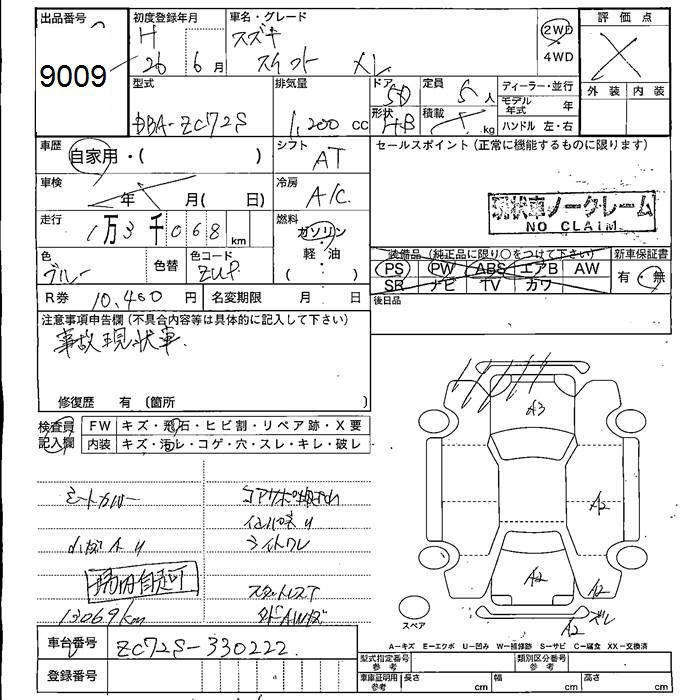 出品番号 9009
初度登録年月 H 26 6月
車名・グレード スズキ スイフト
2WD
4WD
評価点
外装 内装
型式 DBA-ZC72S
排気量 1,200 cc
ドア 5D
形状 HB
定員 5人
積載 kg
ディーラー・並行
モデル年式 年
ハンドル 左・右
車歴 自家用・( )
シフト AT
セールスポイント(正常に機能するものに限ります)
車検 年 月( 日)
冷房 A/C
現状車ノークレーム
NO CLAIM
走行 1万3千068km
燃料 ガソリン
軽・油
( )
色 ブルー
色替
色コード
装備品(純正品に限り○をつけて下さい)
新車保証書
PS PW ABS エアB AW
有・無
SR ナビ TV カワ
R券 10,460円
名変期限 月 日
後日品
注意事項申告欄(不具合内容等は具体的に記入して下さい)
事故現状車
修復歴 有 〔箇所 〕
検査員記入欄
FW キズ・飛石・ヒビ割・リペア跡・X要
内装 キズ・汚レ・コゲ・穴・スレ・キレ・破レ
シートカバー
ライトワレ
場内自走可
スタットレスT
13069km
A3
A2
A2
A2
A2 ズレ
スペア
車台番号 ZC72S-330222
A-キズ E-エクボ U-凹み W-補修跡 S-サビ C-腐食 XX-交換済
登録番号
型式指定番号 参考
類別区分番号 参考
車庫証明用 参考
長さ cm
幅 cm
高さ cm